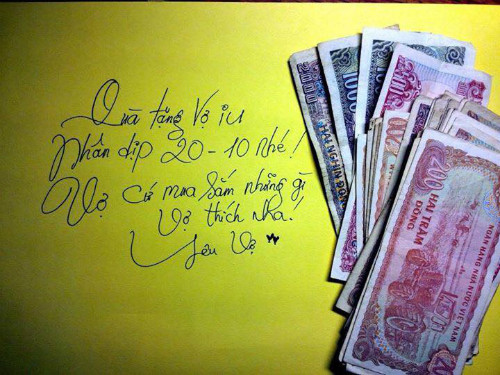 Quà tặng Vợ iu
Nhân dịp 20-10 nhé!
Vợ cứ mua sắm những gì
Vợ thích nha!
Yêu Vợ
2000
1000
HAI NGHÌN ĐỒNG
200
HAI TRĂM
ĐỒNG
NGÂN HÀNG NHÀ NƯỚC VIỆT NAM
200